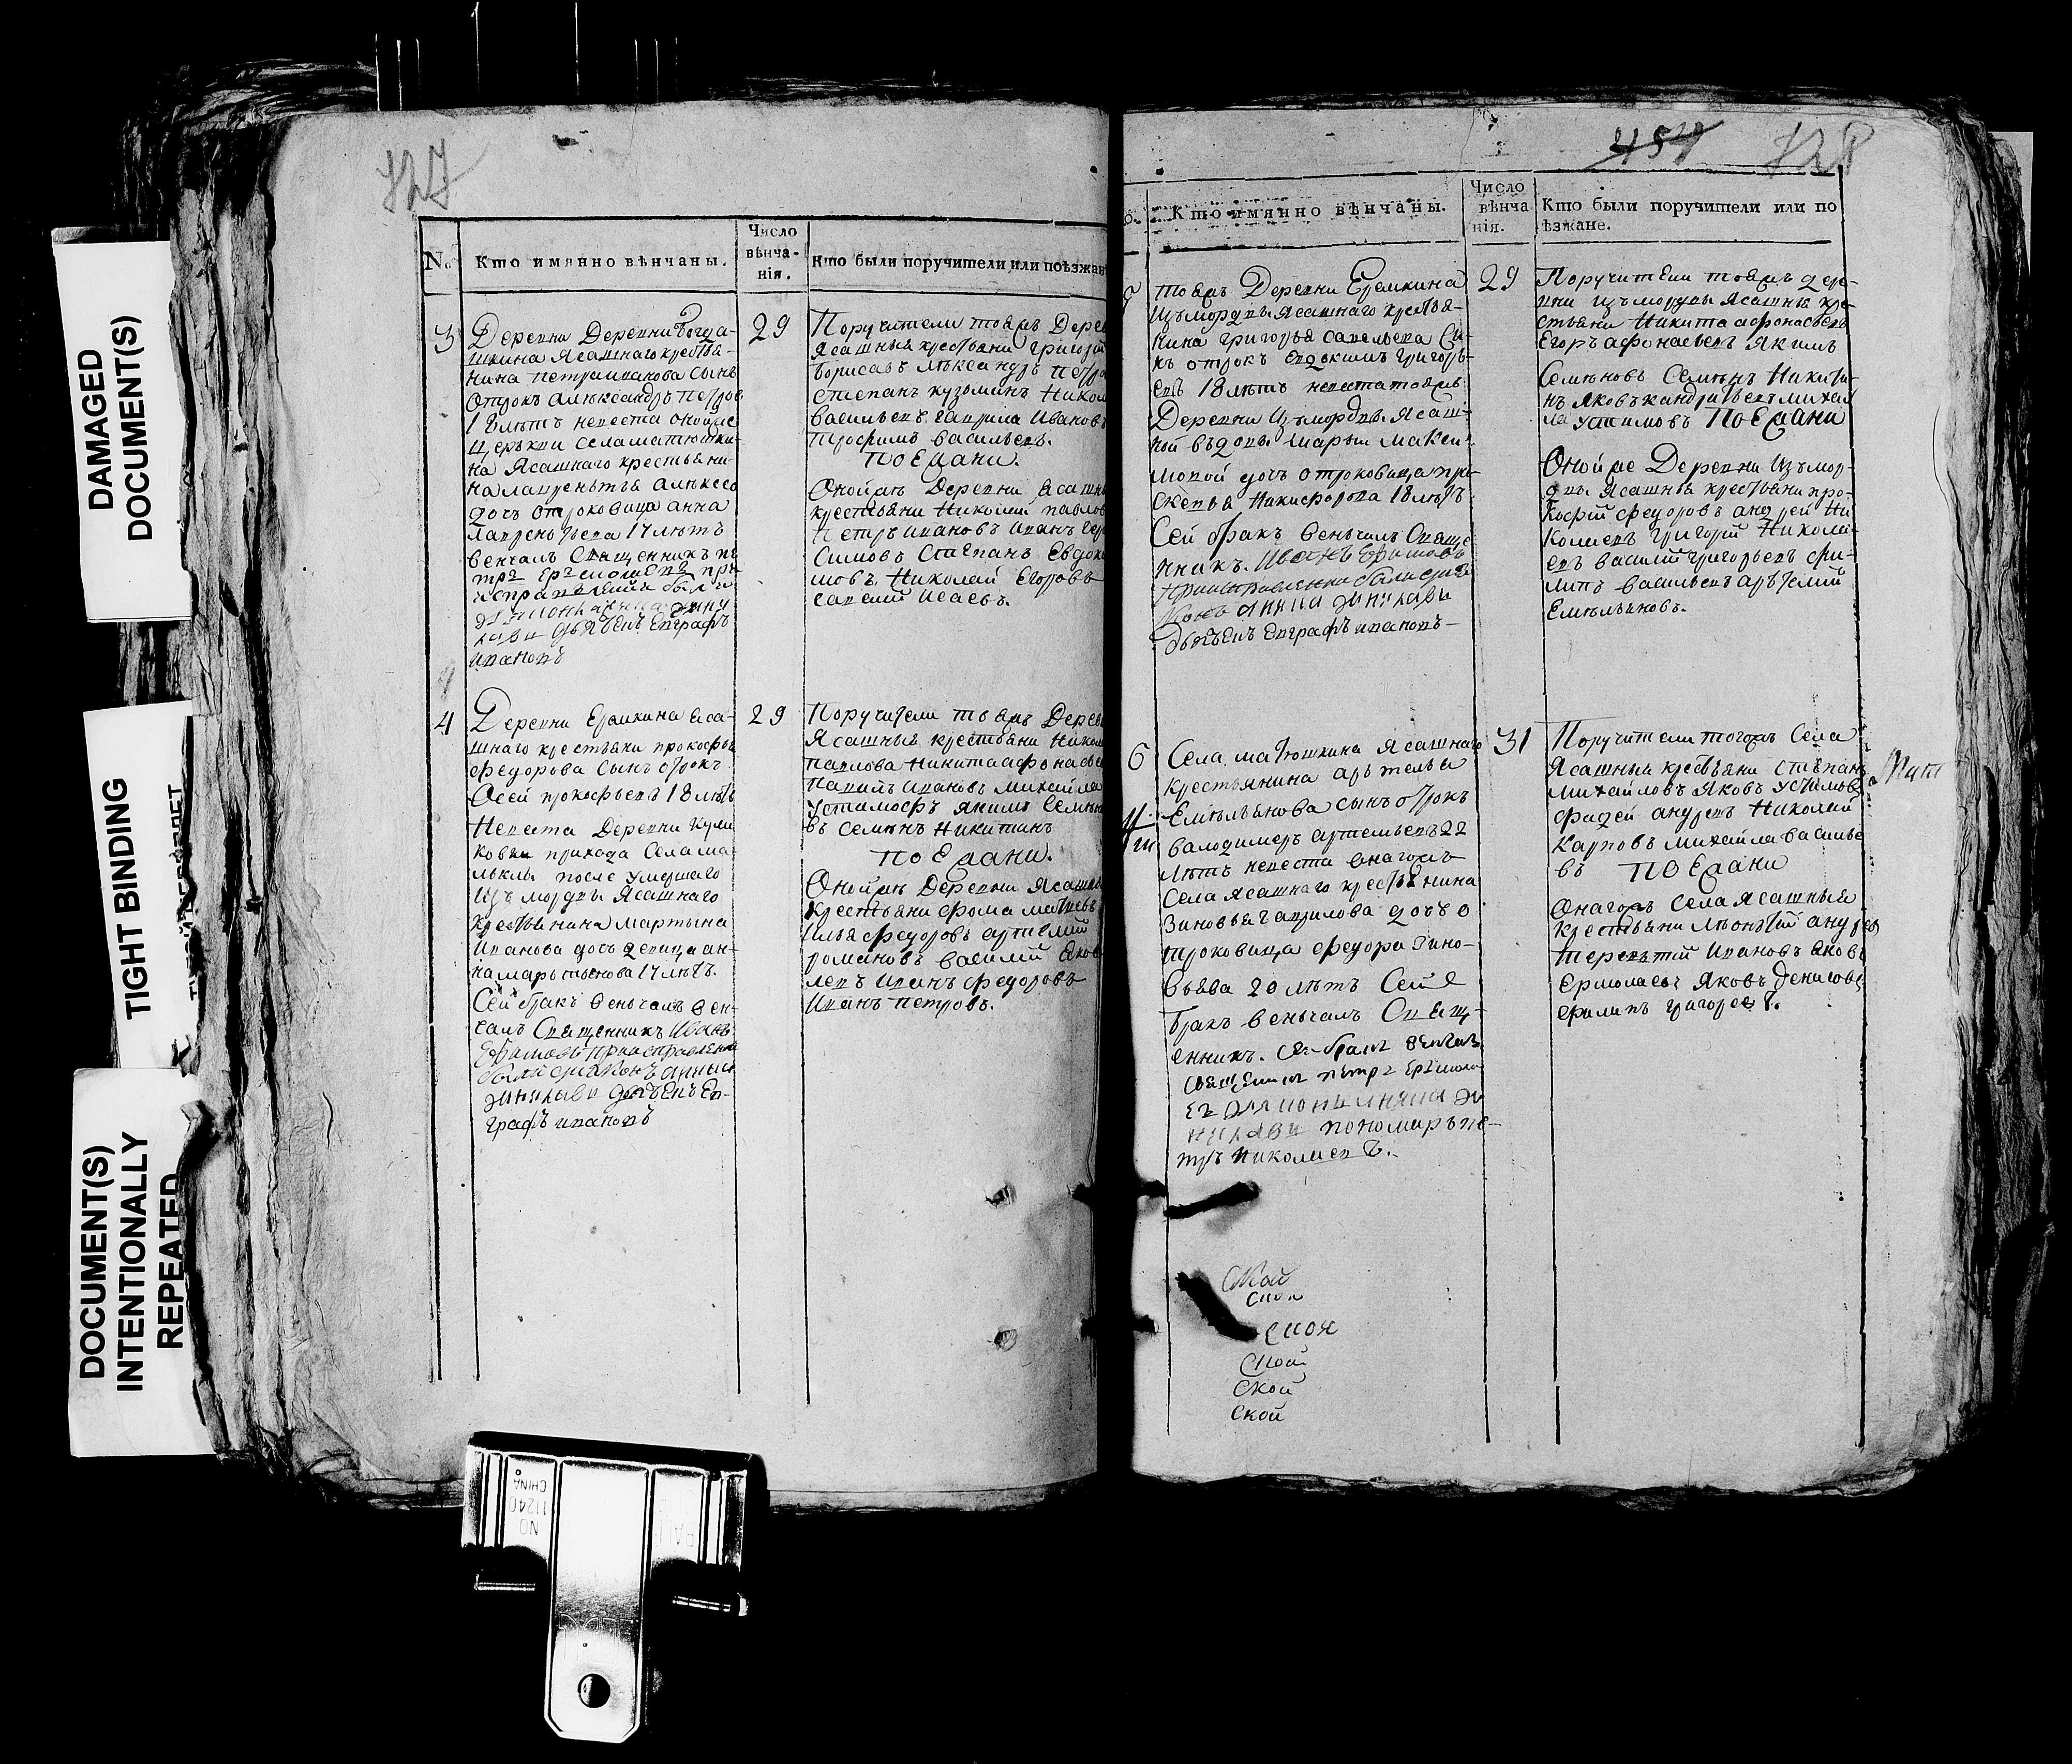 DAMAGED
DOCUMENT(S)
TIGHT BINDING
DOCUMENT(S)
INTENTIONALLY
REPEATED
727
№
Кто имянно вѣнчаны.
Число
вѣнча-
нія.
Кто были поручители или поѣзжан
3
Деревни Деревни Богда-
шкина Ясашнаго крестья-
нина петра иванова сынъ
отрокъ алѣксандръ петров
18 лѣтъ невеста оной же
церькви села матюшки-
на Ясашнаго крестьяни-
на лаврентья алѣксее
дочь отроковица анна
лаврентьева 17 лѣтъ
венчалъ Священникъ пе
тръ
были
дьячекъ Евграфъ
ивановъ
29
Поручители тоежъ Дерев
Ясашныя крестьяни григорій
борисовъ алѣксандръ петро
степанъ кузьминъ Никол
васильевъ гаврила Иванов
трофимъ васильевъ.
поЕзжани.
Оной же Деревни ясашны
крестьяни Николай павлов
петръ ивановъ иванъ гер
Симовъ Степанъ Евдоки
мовъ Николай Егоровъ
савелий исаевъ.
4
Деревни Еремкина яса-
шнаго крестьяни прокофья
федорова сынъ отрокъ
Осей прокофьевъ 18 лѣтъ
Невеста Деревни Кули
ковки прихода Села ма-
лыклы после умершаго
Изъ мордвы Ясашнаго
крестьянина мартына
Иванова дочь девица ан-
на мартынова 17 лѣтъ.
Сей бракъ веньчалъ вен-
чалъ Священникъ Иванъ
Ефимовъ при исправлении
были
дьячекъ Ев-
графъ ивановъ
29
Поручители тоежъ Дерев
Ясашныя крестьяни Никол
павлова Никита афонасье
иванъ ивановъ михайла
Устимовъ якимъ Семѣно
въ семѣнъ Никитинъ
поЕзжани.
Оной же Деревни Ясашны
крестьяни фома матвевъ
илья федоровъ артѣмий
романовъ василий яков
левъ Иванъ федоровъ
Иванъ петровъ.
457 728
Кто имянно вѣнчаны.
Число
вѣнча
нія.
Кто были поручители или по
ѣзжане.
тоежъ Деревни Еремкина
Изъ мордвы Ясашнаго крестья-
нина григорья савельева Сы-
нъ отрокъ Евдокимъ григорь-
евъ 18 лѣтъ невеста тоежъ
Деревни Изъ мордвы Ясаш-
ной въдовы марьи макси-
мовой дочь отроковица пра-
сковья Никифорова 18 лѣтъ
Сей бракъ веньчалъ Свяще
нникъ. Иванъ Ефимовъ
при исправлении были
дьячекъ Евграфъ ивановъ
29
Поручители тоежъ дере-
вни изъ мордвы Ясашныя кре-
стьяни Никита афонасьевъ
Егоръ афонасьевъ якимъ
Семѣновъ Семѣнъ Никити-
нъ яковъ кандратьевъ михай
ла устимовъ поЕзжани
Оной же Деревни Изъ мор-
двы Ясашныя крестьяни про-
кофий федоровъ андрей Ни
колаевъ григорий Никола-
евъ василий григорьевъ фи-
липъ васильевъ артѣмий
Емѣльяновъ.
6
Села матюшкина Ясашнаго
крестьянина артѣмья
Емѣльянова сынъ отрокъ
валодимеръ артемьевъ 22
лѣтъ невеста онагожъ
Села ясашнаго крестьянина
Зиновья гаврилова дочь о
троковица федора Зино-
вьева 20 лѣтъ Сей
бракъ веньчалъ Свящ-
енникъ. Сей бракъ венчалъ
священникъ петръ
пономарь пе-
тръ николаевъ.
31
Поручители тогожъ Села
Ясашныя крестьяни Стѣпанъ
михайловъ яковъ Устимовъ
фадей андревъ Николай
Карповъ михайла василье
въ поЕзжани
Онагожъ Села Ясашныя
крестьяни лѣонтий андрев
терентий Ивановъ яковъ
Ермолаевъ Яковъ денисовъ
филипъ григоревъ.
Ской
Ской
Ской
Ской
Ской
Ской
NO
11240
CHINA